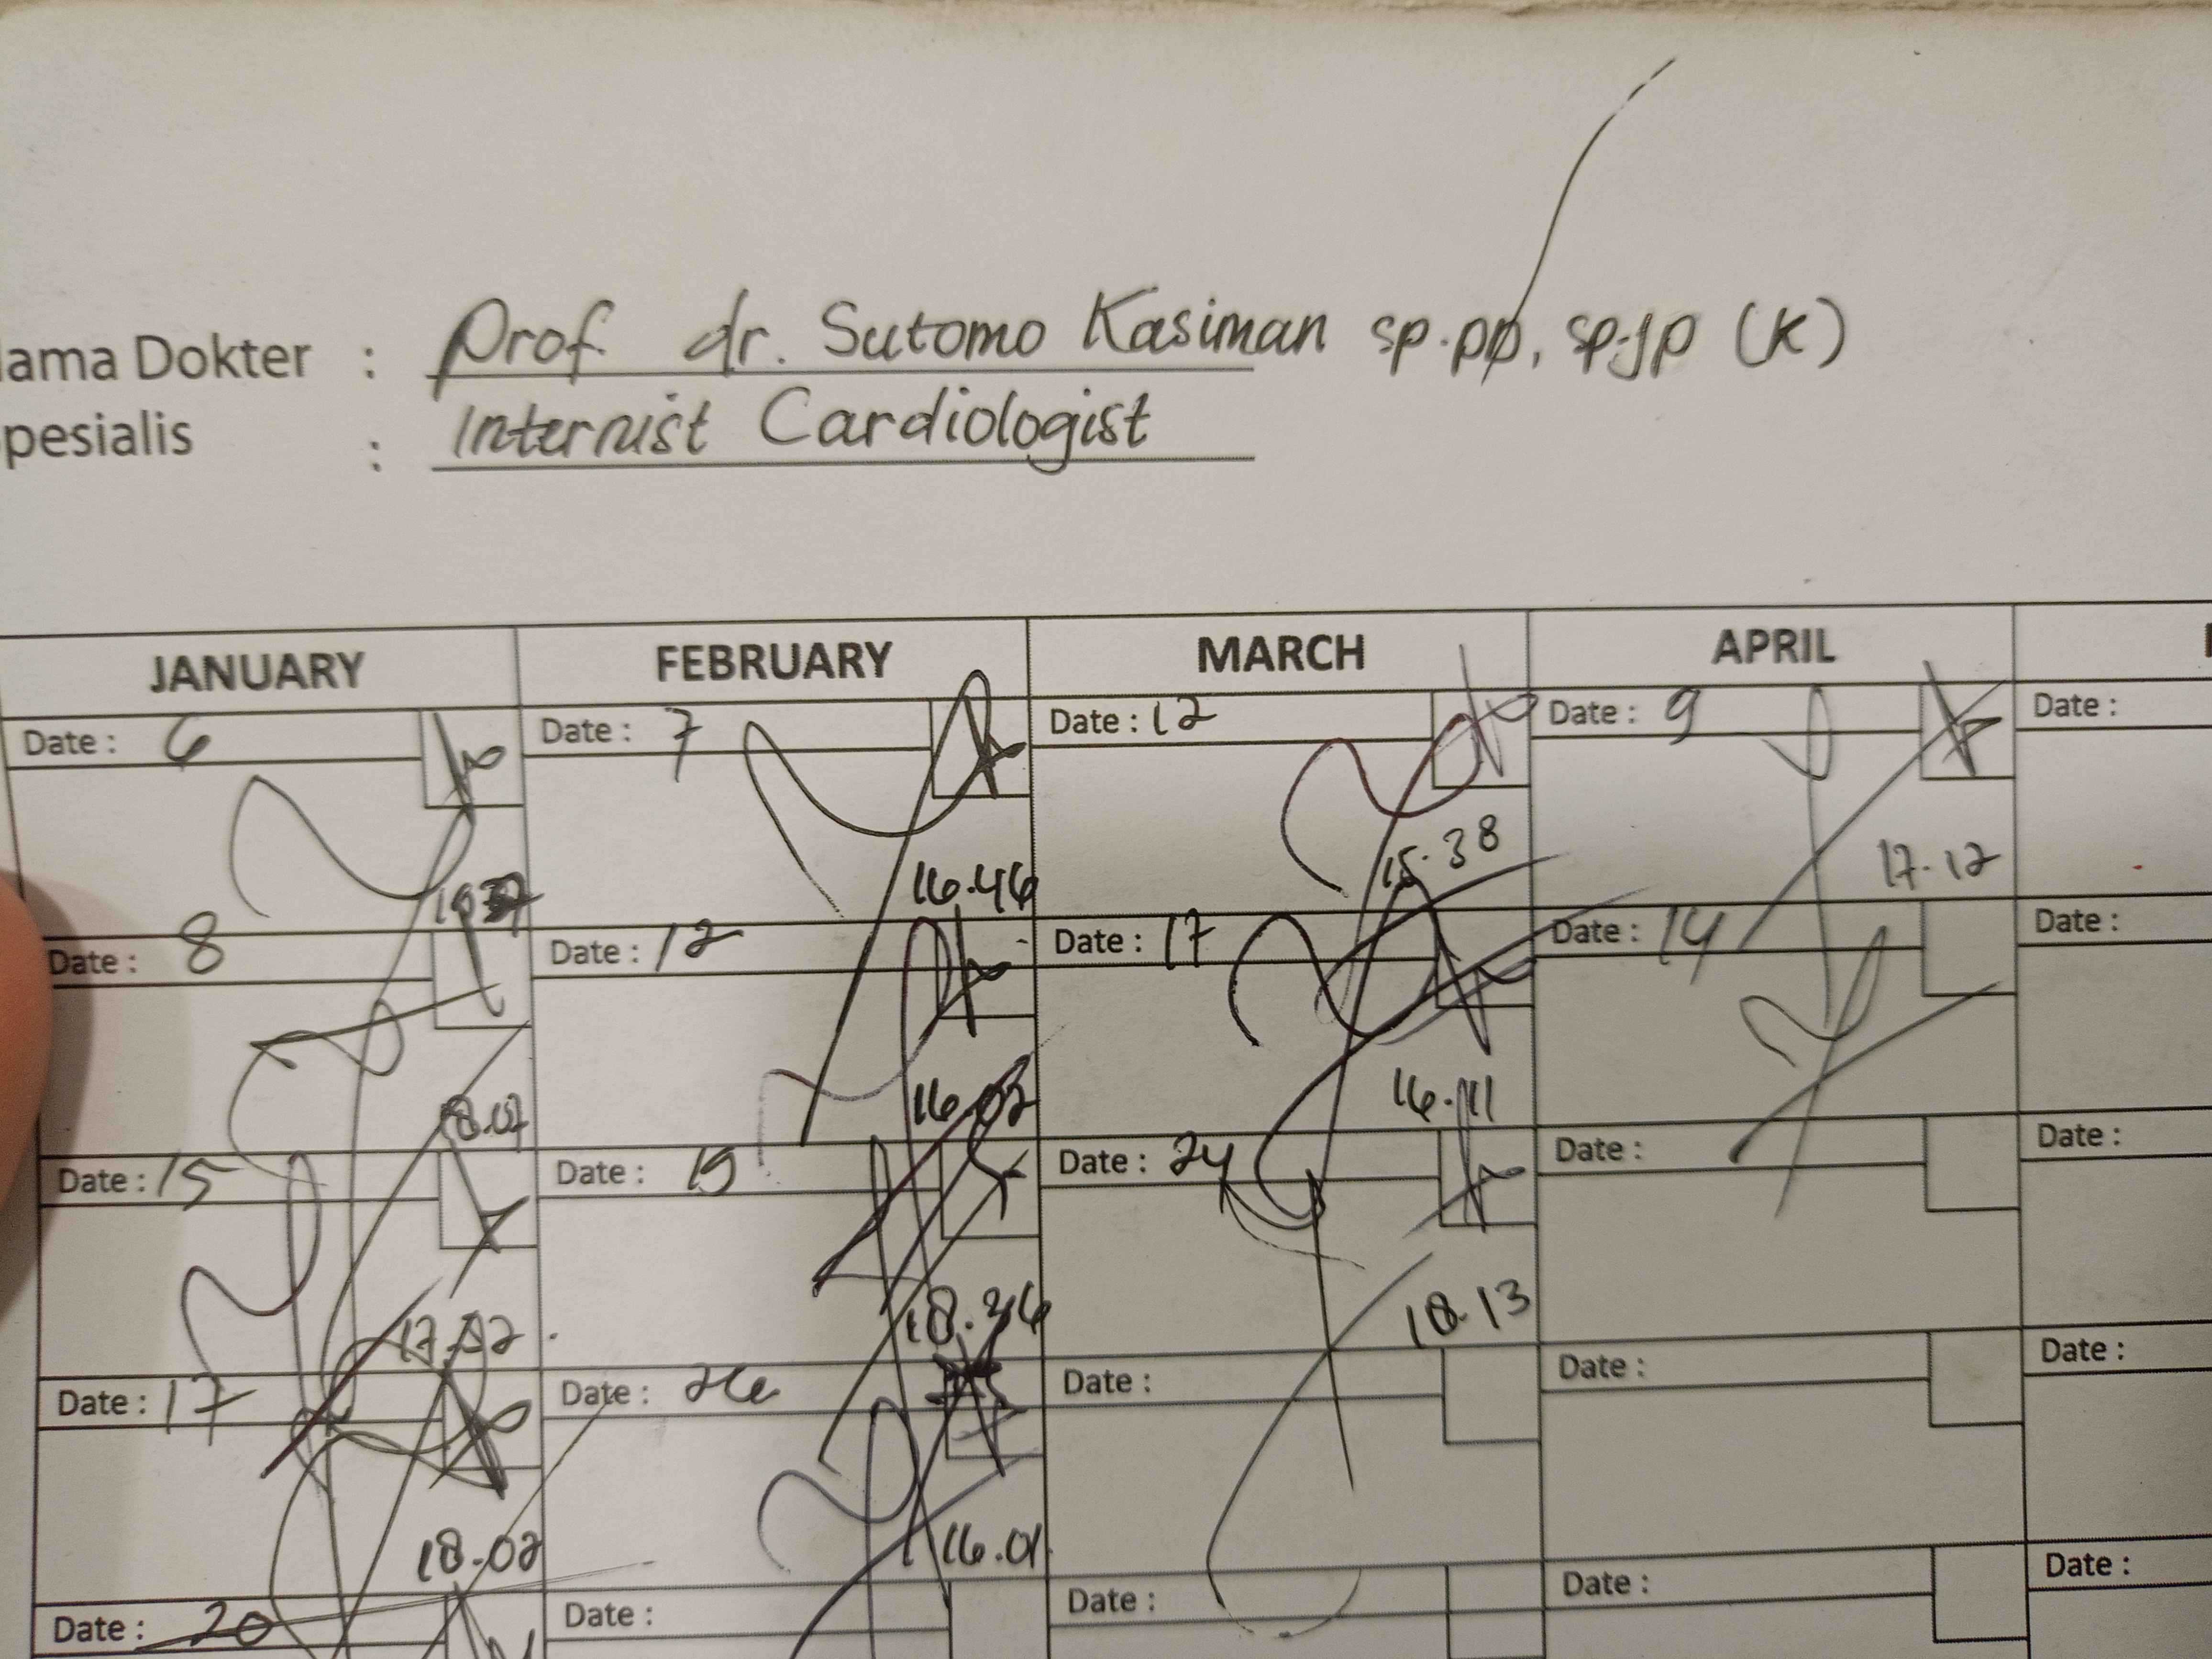 ama Dokter : Prof. dr. Sutomo Kasiman sp.pp, sp.jp (K)
pesialis : Internist Cardiologist
JANUARY FEBRUARY MARCH APRIL
Date : 6 Date : 7 Date : 12 Date : 9 Date :
16.46 15.38 17.12
Date : 8 Date : 12 Date : 17 Date : 14 Date :
18.07 16.02 16.11
Date : 15 Date : 19 Date : 24 Date : Date :
18.36 18.13
Date : 17 Date : 26 Date : Date : Date :
18.02 16.01
Date : 20 Date : Date : Date : Date :